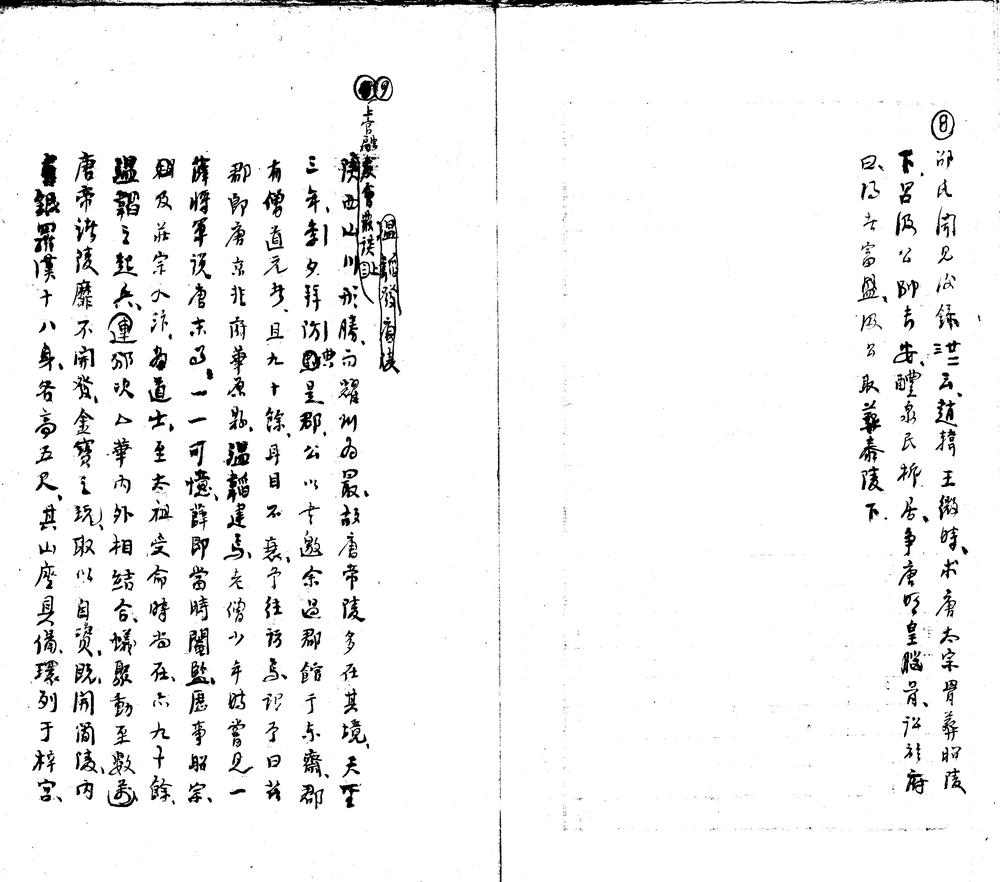 ⑧邵氏聞見後錄廿二云、趙韓王微時、求唐太宗骨葬昭陵
下、呂汲公帥長安、醴泉民析居、爭唐明皇腦骨、訟於府
曰、得者富盛、汲公取葬泰陵下.
⑨
溫韜發唐陵
上官融友會叢談上
陝西山川形勝、而耀州為最、故唐帝陵多在其境、天聖
三年季夕拜訪典是郡、公以書邀余過郡館于東齋、郡
有僧道元者、且九十餘、耳目不衰、予往訪焉、謂予曰茲
郡即唐京兆府華原縣、溫韜建焉、老僧少年時嘗見一
薛將軍說唐末事、一一可憶、薛即當時閹監、歷事昭宗、
及莊宗入汴、為道士、至太祖受命時尚在、六九十餘、
溫韜之起兵、連邠吹山華內外相結合、蟻聚動至數萬、
唐帝諸陵靡不開發、金寶之玩、取以自資、既開陵、內
銀羅漢十八身、各高五尺、其山座具備、環列于梓宮、